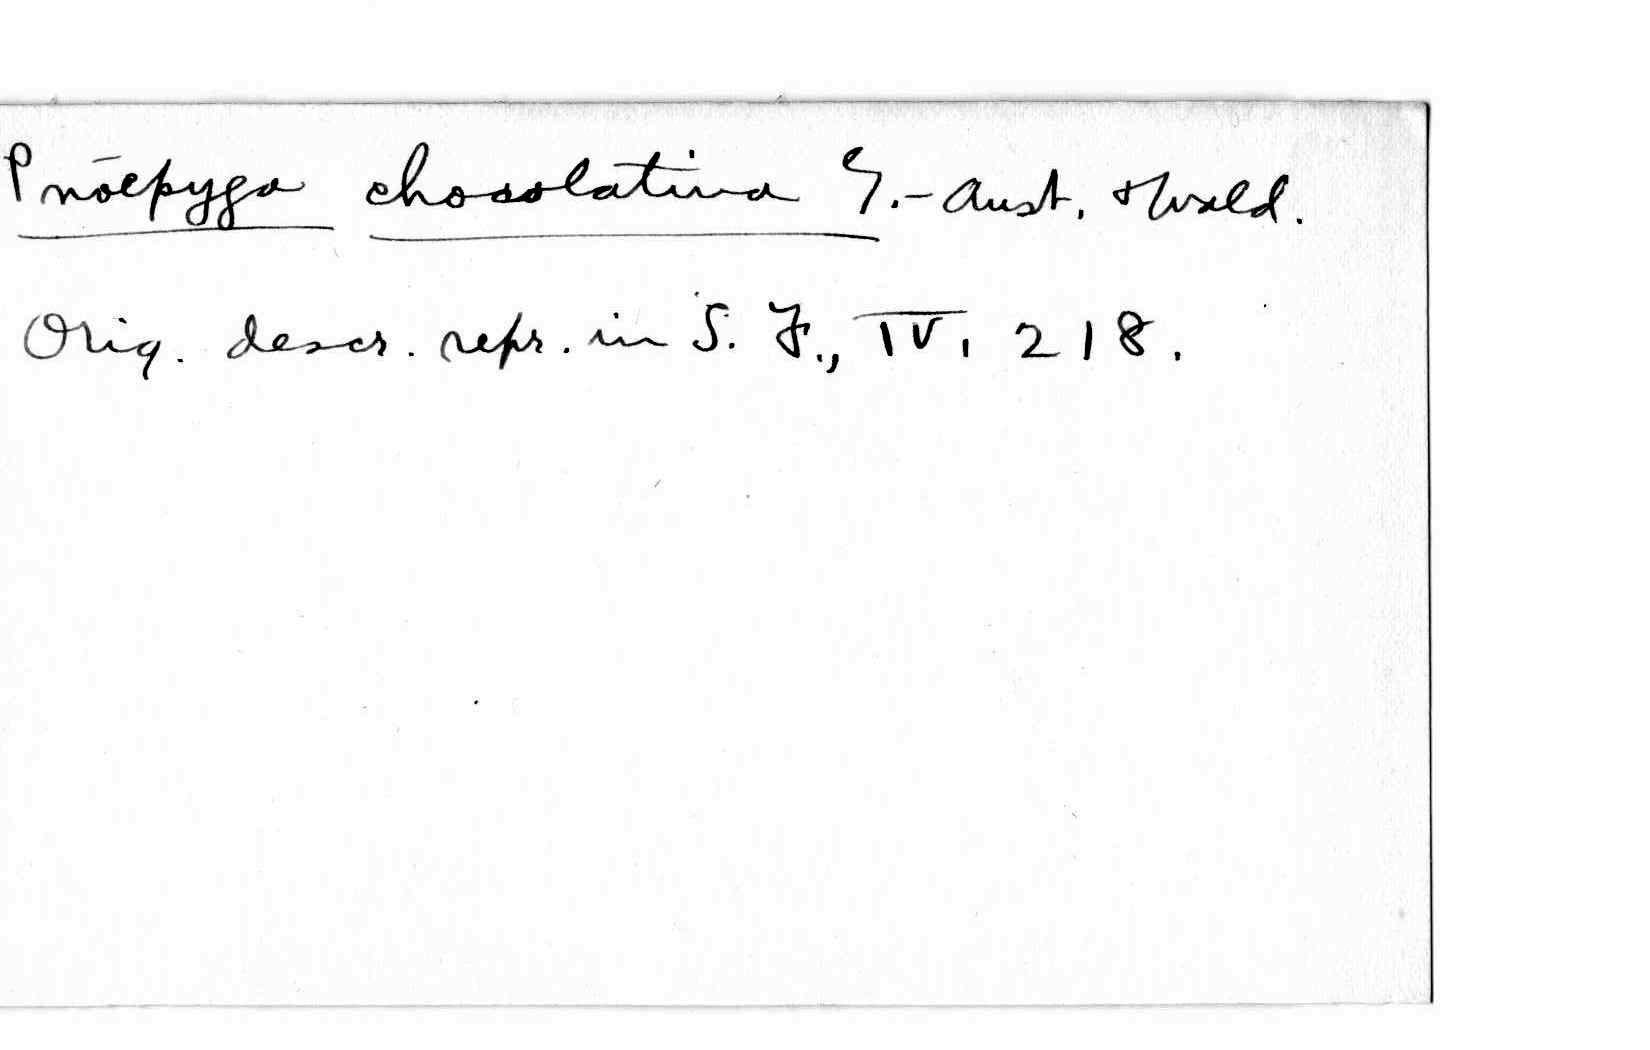 Pnöepyga chocolatina G.-Aust. & Wald.
Orig. descr. repr. in S. F., IV, 218.